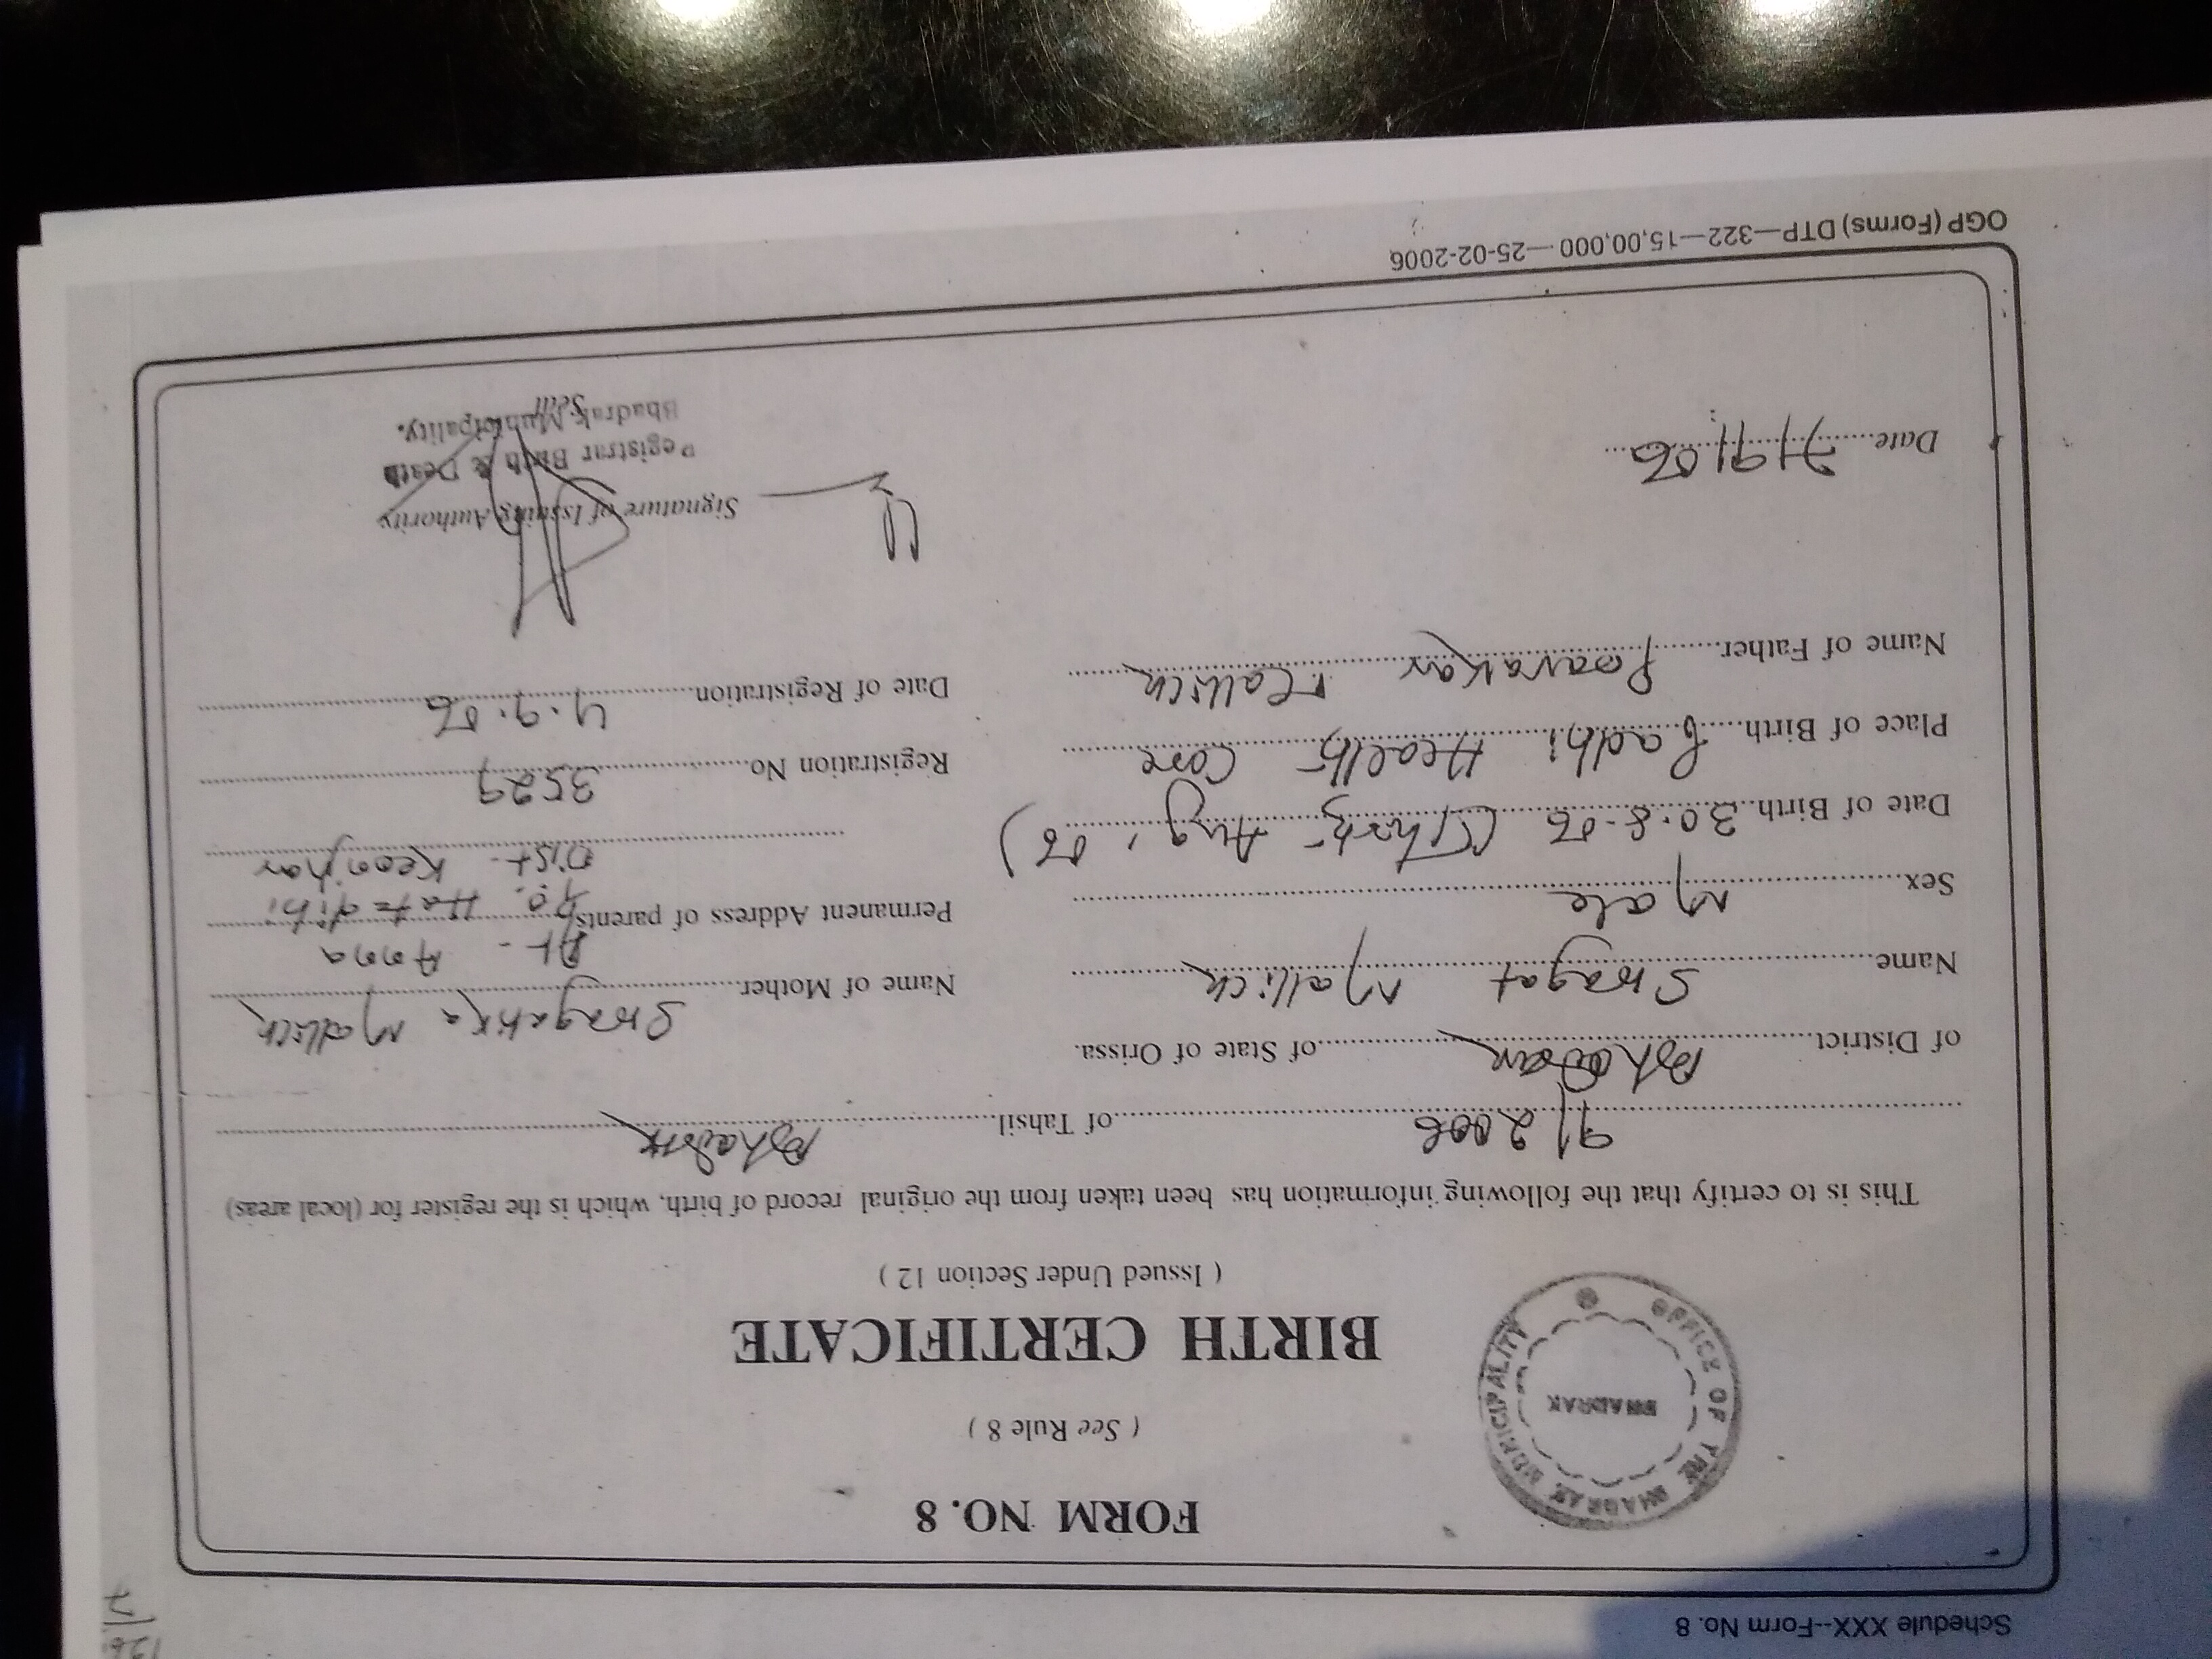 Schedule XXX--Form No. 8
FORM NO. 8
( See Rule 8 )
OFFICE OF THE BHADRAK MUNICIPALITY
BHADRAK
BIRTH CERTIFICATE
( Issued Under Section 12 )
This is to certify that the following information has been taken from the original record of birth, which is the register for (local areas)
9/2006 of Tahsil Bhadrak
of District of State of Orissa.
Name Swagat Mallick
Sex Male
Date of Birth 30.8.06 (Thirty Aug, 06)
Place of Birth Padhi Health Care
Name of Father Mallick
Name of Mother Swagatika Mallick
Permanent Address of parents At- Anna
P.O. Hatadihi
Dist- Keonjhar
Registration No 3529
Date of Registration 4.9.06
Date 7/9/06
Signature of Issuing Authority
Registrar Birth & Death
Bhadrak Municipality.
OGP (Forms) DTP—322—15,00,000—25-02-2006